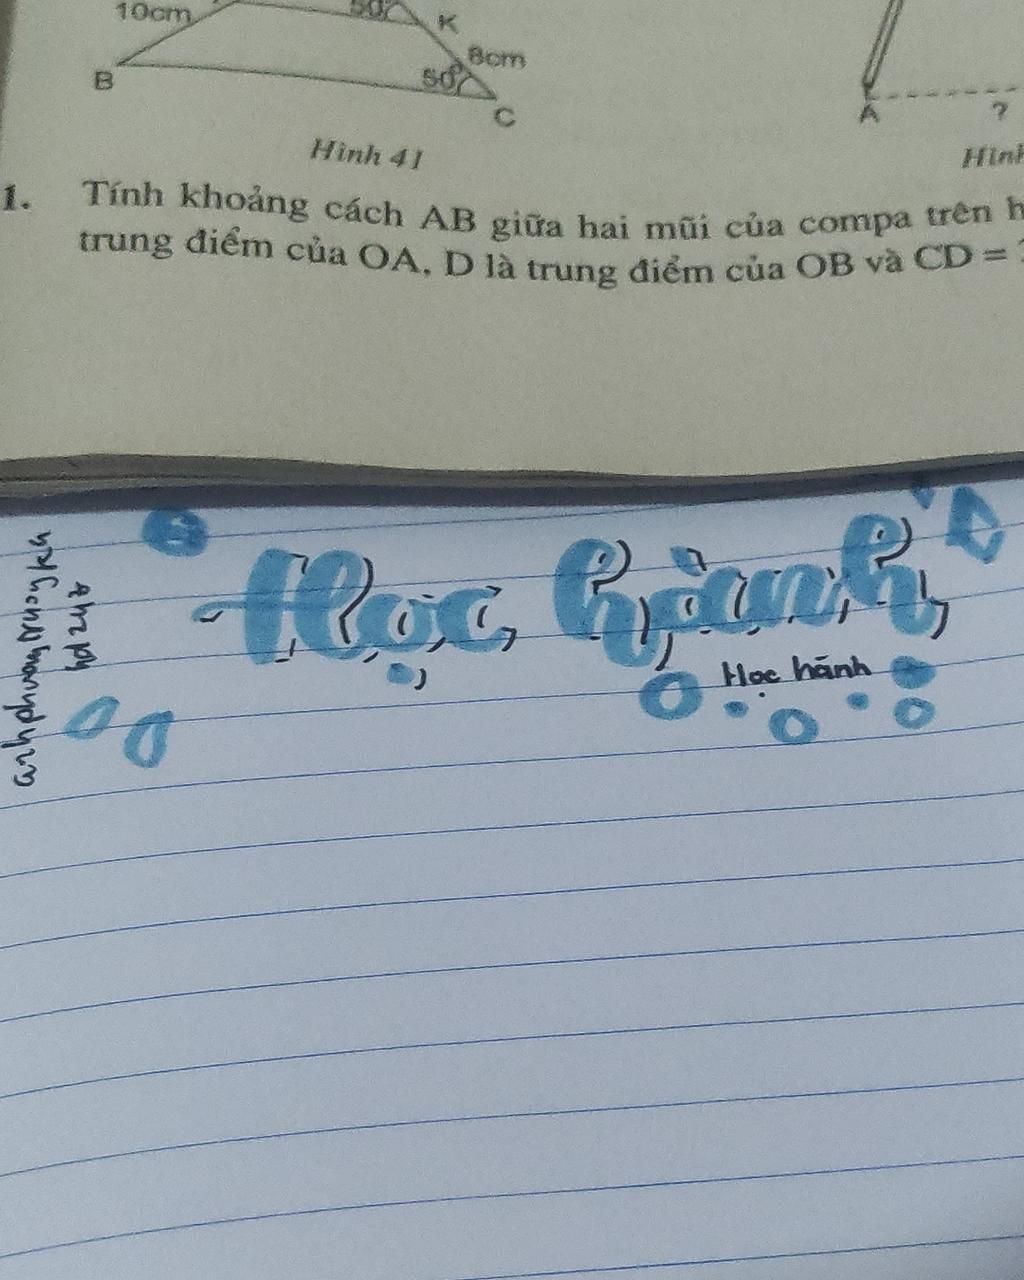 10cm
50°
K
8cm
B
50°
C
A
?
Hình 41
1. Tính khoảng cách AB giữa hai mũi của compa trên
trung điểm của OA, D là trung điểm của OB và CD =
Học hành
Học hành